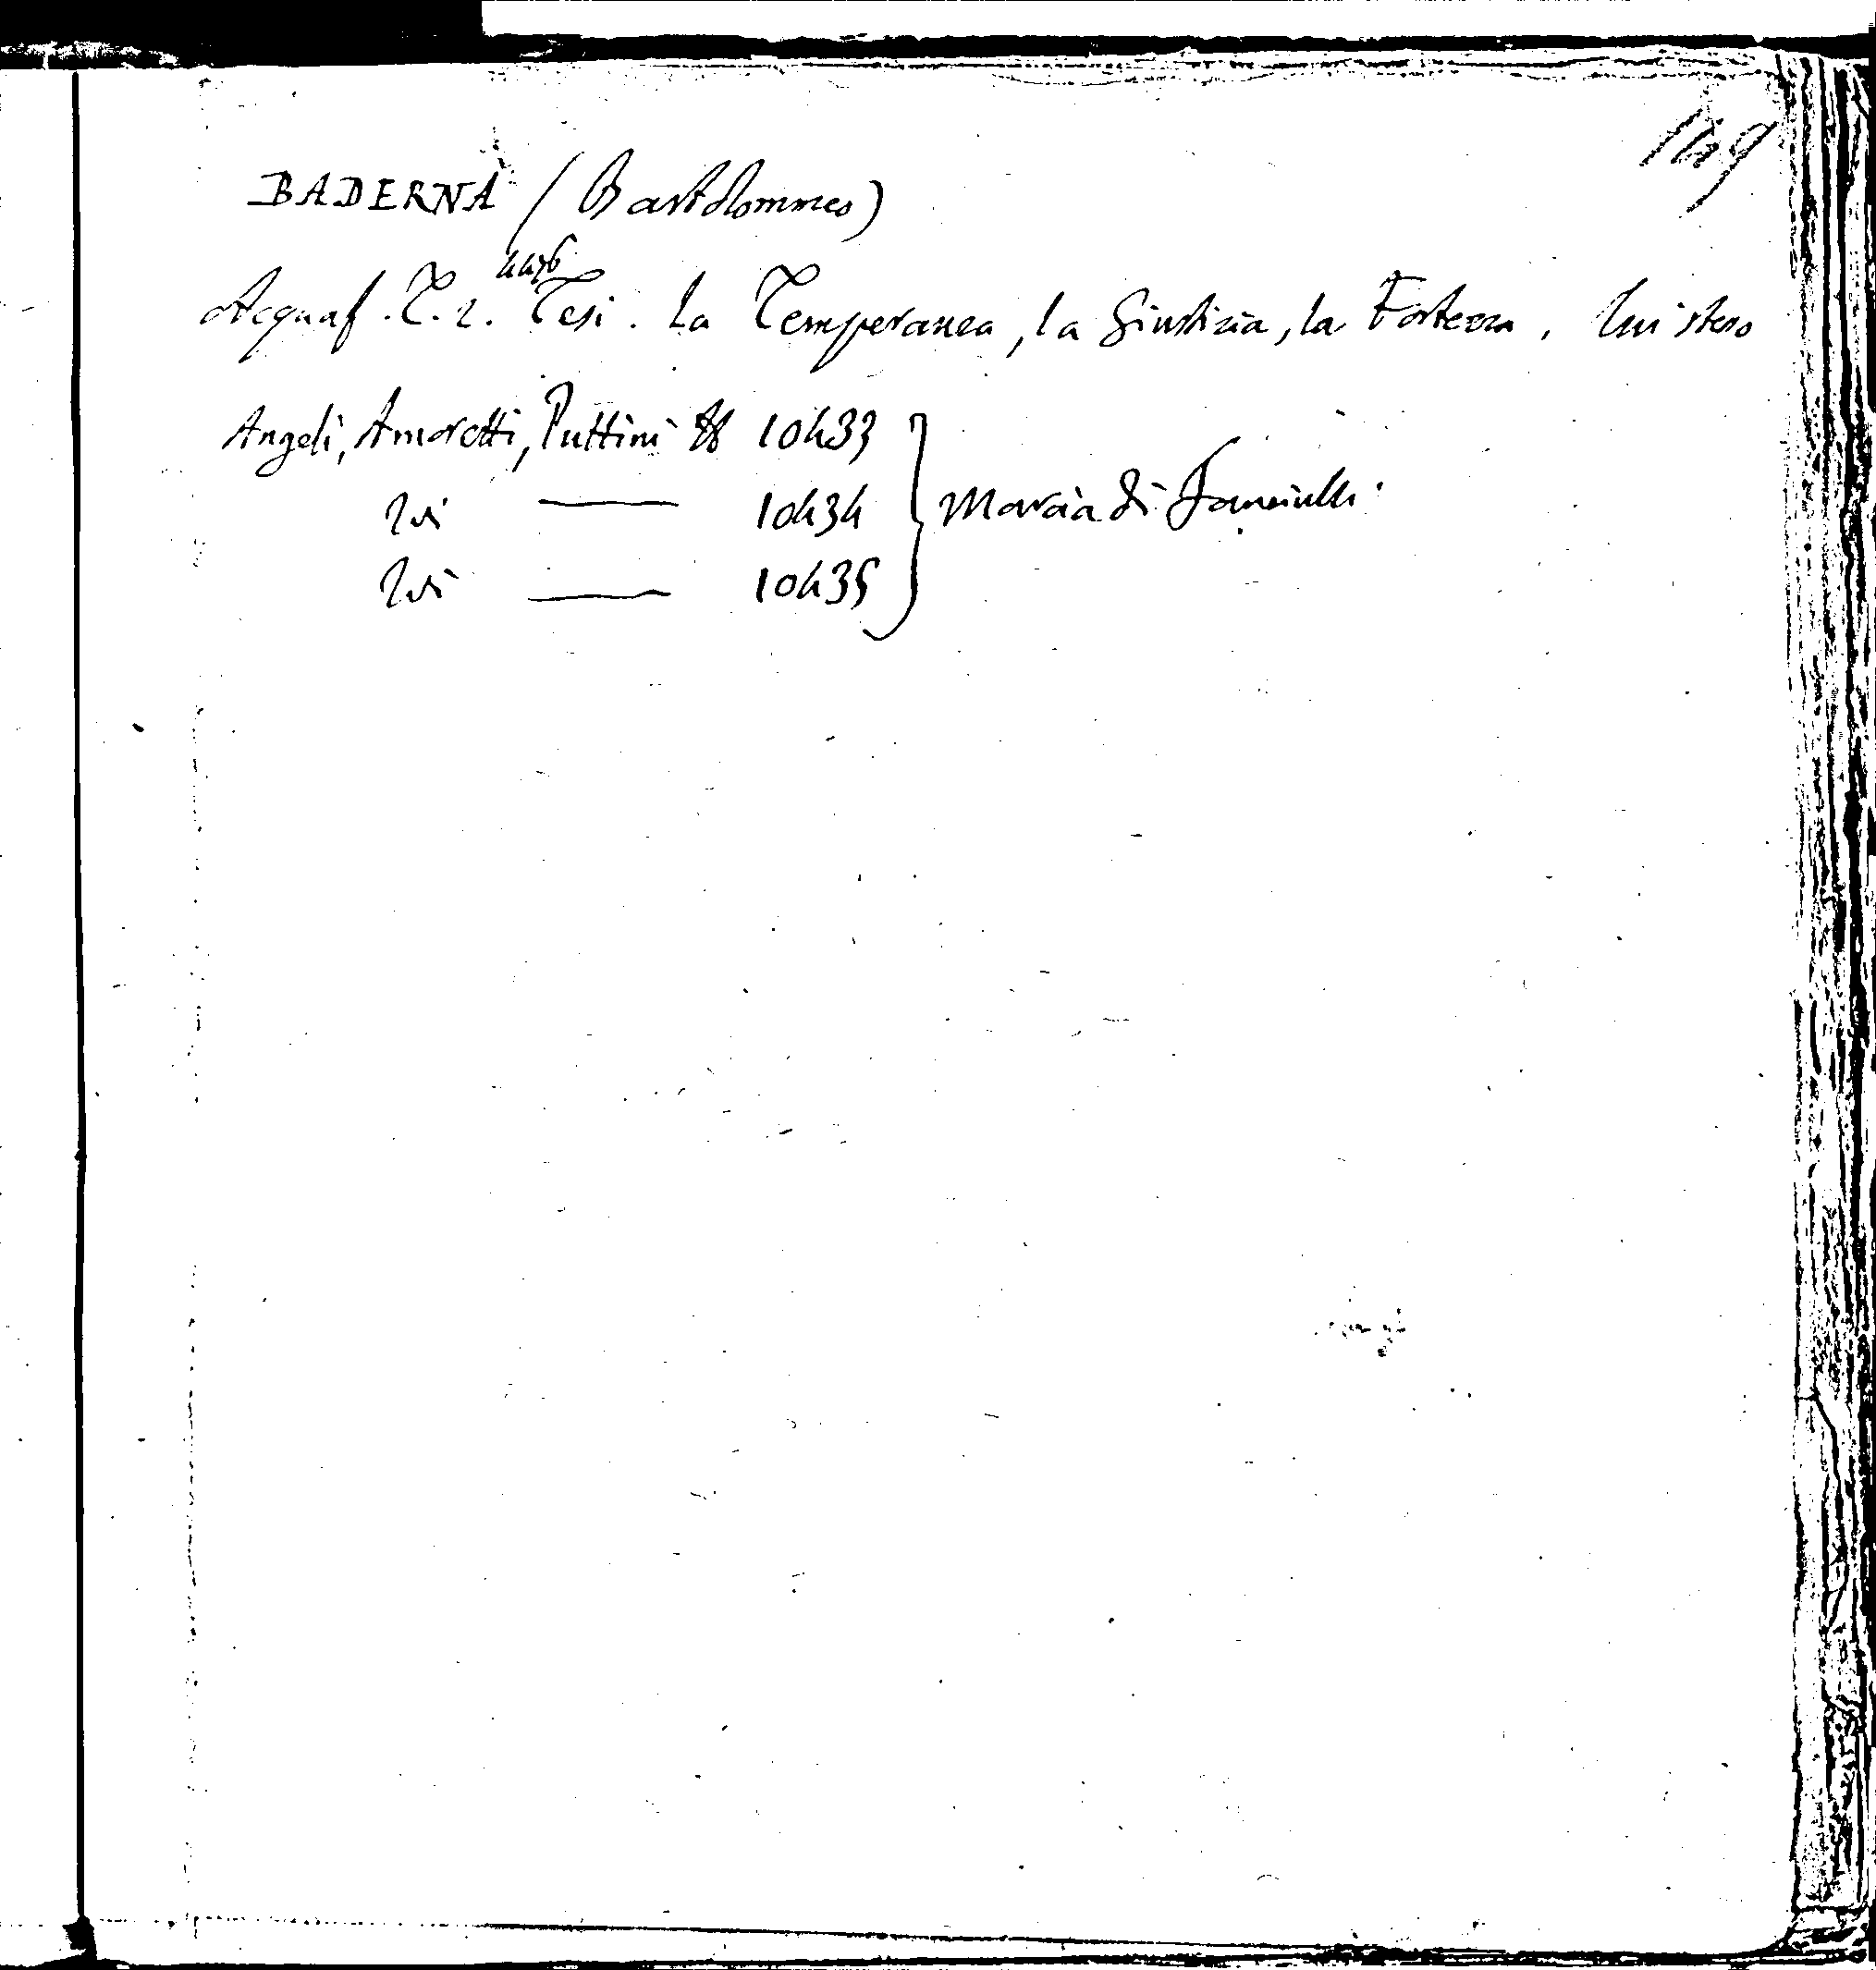 149
BADERNA (Bartolommeo)
4476
Acquaf. T. 2. Tesi. La Temperanza, la Giustizia, la Fortezza. Lui stesso
Angeli, Amoretti, Puttini 10433
Ivi — 10434 Marcia di Fanciulli.
Ivi — 10435